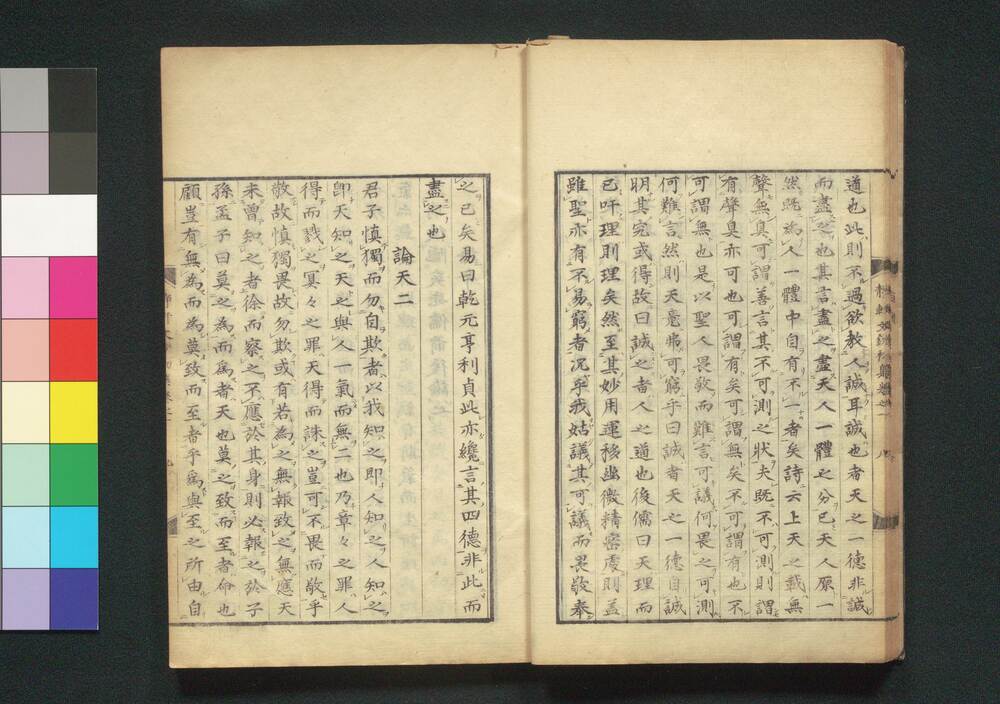 道也此則不過欲教人誠耳誠也者天之一德非誠
而盡之也其言盡之盡天人一體之分已天人原一
然既為人一體中自有不一者矣詩云上天之載無
聲無臭可謂善言其不可測之狀夫既不可測則謂
有聲臭亦可也可謂有矣可謂無矣不可謂有也不
可謂無也是以聖人畏敬而難言可議何畏之可測
何難言然則天毫弗可窮乎曰誠者天之一德自誠
明其完或得故曰誠之者人之道也後儒曰天理而
已吁理則理矣然至其妙用運移幽微精密處則蓋
雖聖亦有不易窮者況乎我姑議其可議而畏敬奉
之已矣易曰乾元亨利貞此亦纔言其四德非此而
盡之也
論天二
君子慎獨而勿自欺者以我知之即人知之人知之
即天知之天之與人一氣而無二也乃章々之罪人
得而戮之冥々之罪天得而誅之豈可不畏而敬乎
敬故慎獨畏故勿欺或有若為之無報致之無應天
未曾知之者徐而察之不應於其身則必報之於子
孫孟子曰莫之為而為者天也莫之致而至者命也
顧豈有無為而為莫致而至者乎為與至之所由自